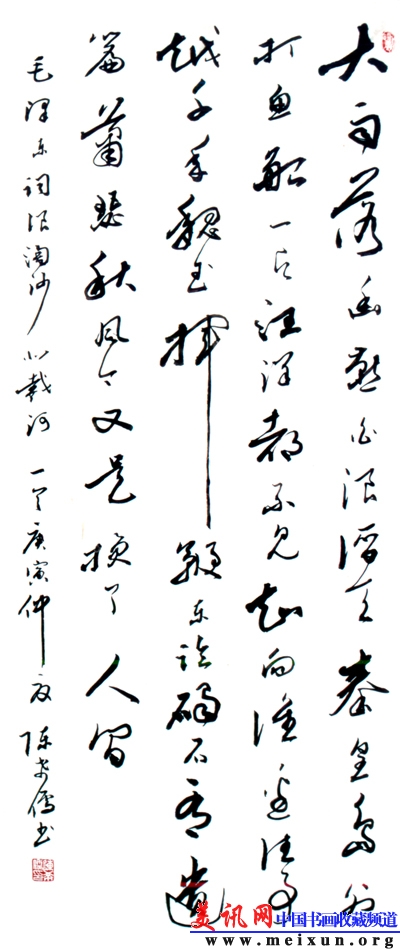 大雨落幽燕白浪滔天秦皇岛外
打鱼船一片汪洋都不见知向谁边往事
越千年魏武挥鞭东临碣石有遗
篇萧瑟秋风今又是换了人间
毛泽东词浪淘沙北戴河一首庚寅仲夏陈儒书
美讯网 中国书画收藏频道
www.meixun.org